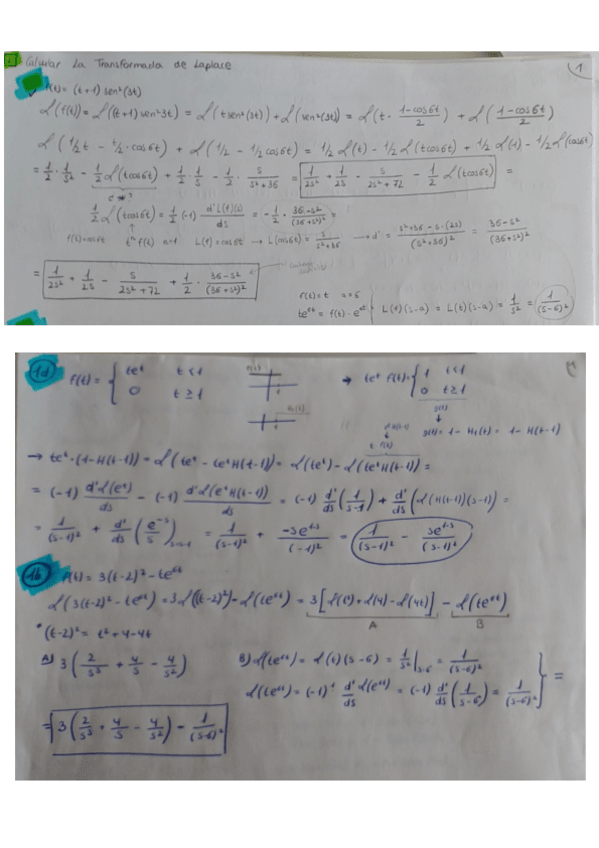 Calcular La Transformada de Laplace
1
f(t) = (t+1) sen²(3t)
ℒ(f(t)) = ℒ((t+1) sen²3t) = ℒ(t sen²(3t)) + ℒ(sen²(3t)) = ℒ(t · (1-cos6t)/2) + ℒ((1-cos6t)/2)
ℒ(1/2 t - 1/2 · cos6t) + ℒ(1/2 - 1/2 cos6t) = 1/2 ℒ(t) - 1/2 ℒ(t cos6t) + 1/2 ℒ(1) - 1/2 ℒ(cos6t)
= 1/2 · 1/s² - 1/2 ℒ(t cos6t) + 1/2 · 1/s - 1/2 · s/(s²+36) = 1/(2s²) + 1/(2s) - s/(2s²+72) - 1/2 ℒ(t cos6t) =
1/2 ℒ(t cos6t) = 1/2 (-1) d'L(f)(s)/ds = -1/2 · (36-s²)/(36+s²)² =
f(t)=cos6t tⁿ f(t) n=1 L(f) = cos6t → L(cos6t) = s/(s²+36) → d' = (s²+36 - s·(2s))/(s²+36)² = (36-s²)/(36+s²)²
= 1/(2s²) + 1/(2s) - s/(2s²+72) + 1/2 · (36-s²)/(36+s²)²
f(t) = t a=6
te^6t = f(t) · e^at L(f)(s-a) = L(t)(s-a) = 1/s² = 1/(s-6)²
1d f(t) = { te^t t<1
0 t≥1
→ te^t f(t) = { 1 t<1
0 t≥1
g(t)
g(t) = 1 - H₁(t) = 1 - H(t-1)
→ te^t · (1-H(t-1)) = ℒ(te^t - te^t H(t-1)) = ℒ(te^t) - ℒ(te^t H(t-1)) =
= (-1) d'ℒ(e^t)/ds - (-1) d'ℒ(e^t H(t-1))/ds = (-1) d'/ds (1/(s-1)) + d'/ds (ℒ(H(t-1))(s-1)) =
= 1/(s-1)² + d'/ds (e^-s/s)s→s-1 = 1/(s-1)² + -se^1-s/(s-1)² = 1/(s-1)² - se^1-s/(s-1)²
1b f(t) = 3(t-2)² - te^6t
ℒ(3(t-2)² - te^6t) = 3ℒ((t-2)²) - ℒ(te^6t) = 3[ℒ(t²) + ℒ(4) - ℒ(4t)] - ℒ(te^6t)
A B
*(t-2)² = t² + 4 - 4t
A) 3(2/s³ + 4/s - 4/s²) B) ℒ(te^6t) = ℒ(t)(s-6) = 1/s²|s-6 = 1/(s-6)²
ℒ(te^6t) = (-1)¹ d'/ds ℒ(e^6t) = (-1) d'/ds (1/(s-6)) = 1/(s-6)² } =
= 3(2/s³ + 4/s - 4/s²) - 1/(s-6)²